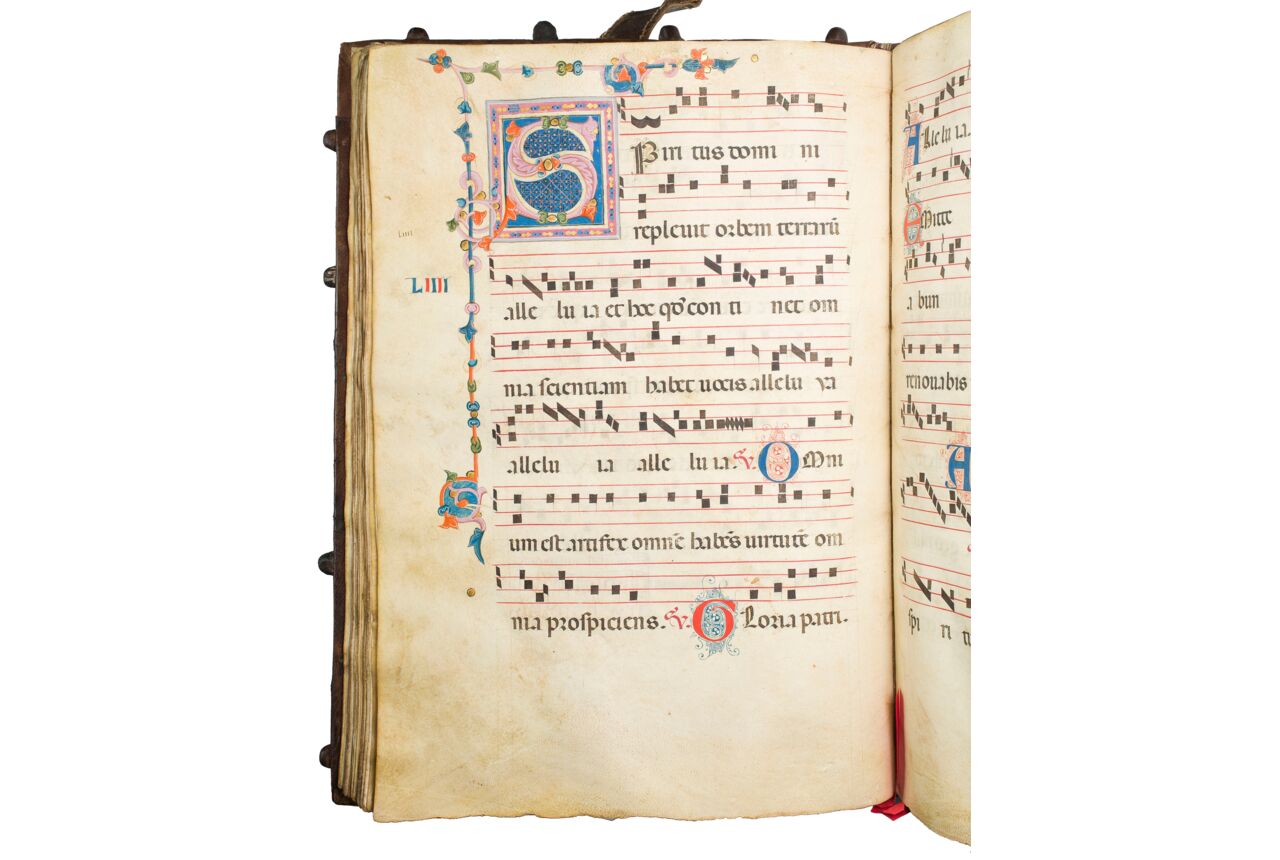 SPiri tus domi ni
repleuit orbem terrarū
Liiii
LIIII
alle lu ia et hoc qđ con ti net om
nia scientiam habet uocis allelu ya
allelu ia alle lu ia. V. OMni
um est artifex omnē habēs uirtutē om
nia prospiciens. V. GLoria patri.
Alle lu ia.
EMitte
a bun
renouabis
A
spi ri t